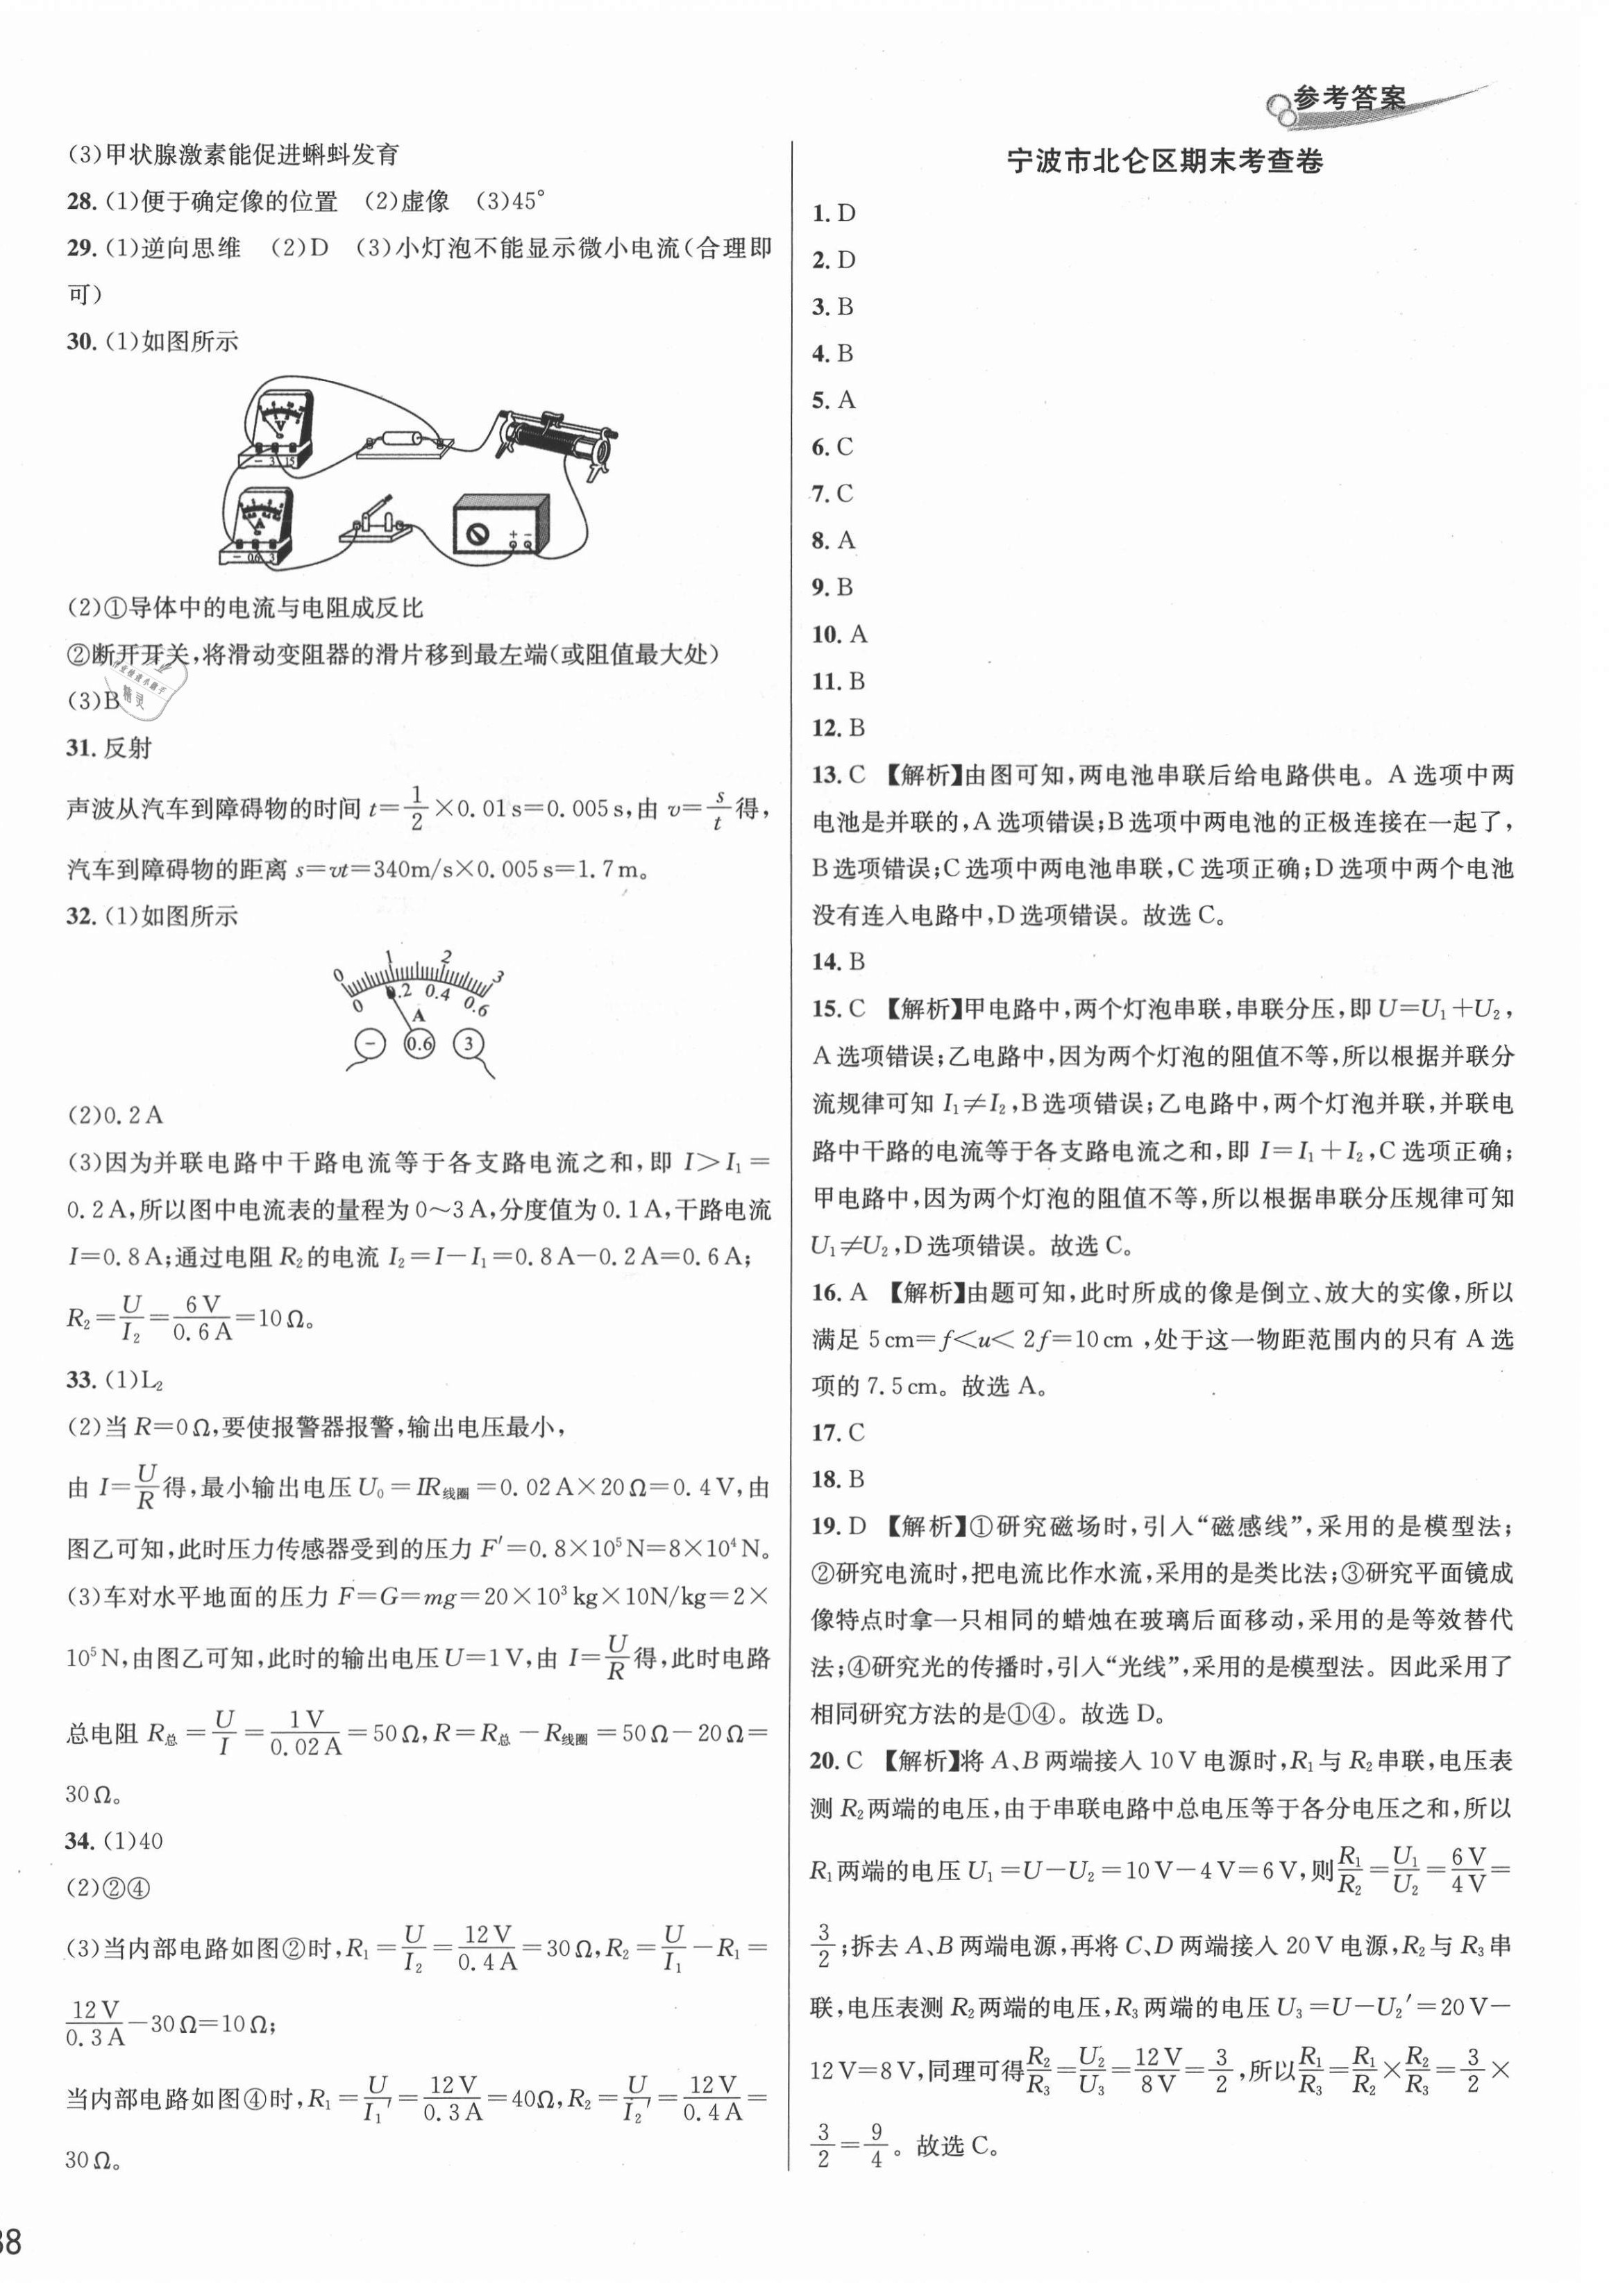 参考答案
(3)甲状腺激素能促进蝌蚪发育
28. (1)便于确定像的位置 (2)虚像 (3)45°
29. (1)逆向思维 (2)D (3)小灯泡不能显示微小电流(合理即
可)
30. (1)如图所示
V
− 3 15
A
− 0.6 3
+ −
(2)①导体中的电流与电阻成反比
②断开开关,将滑动变阻器的滑片移到最左端(或阻值最大处)
(3)B
精灵
31. 反射
声波从汽车到障碍物的时间 t=1/2×0.01s=0.005s,由 v=s/t得,
汽车到障碍物的距离 s=vt=340m/s×0.005s=1.7m。
32. (1)如图所示
0 1 2 3
0 0.2 0.4 0.6
A
− 0.6 3
(2)0.2A
(3)因为并联电路中干路电流等于各支路电流之和,即 I>I₁=
0.2A,所以图中电流表的量程为0～3A,分度值为0.1A,干路电流
I=0.8A;通过电阻R₂的电流 I₂=I−I₁=0.8A−0.2A=0.6A;
R₂=U/I₂=6V/0.6A=10Ω。
33. (1)L₂
(2)当R=0Ω,要使报警器报警,输出电压最小,
由 I=U/R得,最小输出电压U₀=IR线圈=0.02A×20Ω=0.4V,由
图乙可知,此时压力传感器受到的压力 F′=0.8×10⁵N=8×10⁴N。
(3)车对水平地面的压力 F=G=mg=20×10³kg×10N/kg=2×
10⁵N,由图乙可知,此时的输出电压U=1V,由 I=U/R得,此时电路
总电阻 R总=U/I=1V/0.02A=50Ω,R=R总−R线圈=50Ω−20Ω=
30Ω。
34. (1)40
(2)②④
(3)当内部电路如图②时,R₁=U/I₂=12V/0.4A=30Ω,R₂=U/I₁−R₁=
12V/0.3A−30Ω=10Ω;
当内部电路如图④时,R₁=U/I₁′=12V/0.3A=40Ω,R₂=U/I₂′=12V/0.4A=
30Ω。
38
宁波市北仑区期末考查卷
1. D
2. D
3. B
4. B
5. A
6. C
7. C
8. A
9. B
10. A
11. B
12. B
13. C 【解析】由图可知,两电池串联后给电路供电。A选项中两
电池是并联的,A选项错误;B选项中两电池的正极连接在一起了,
B选项错误;C选项中两电池串联,C选项正确;D选项中两个电池
没有连入电路中,D选项错误。故选C。
14. B
15. C 【解析】甲电路中,两个灯泡串联,串联分压,即U=U₁+U₂,
A选项错误;乙电路中,因为两个灯泡的阻值不等,所以根据并联分
流规律可知 I₁≠I₂,B选项错误;乙电路中,两个灯泡并联,并联电
路中干路的电流等于各支路电流之和,即 I=I₁+I₂,C选项正确;
甲电路中,因为两个灯泡的阻值不等,所以根据串联分压规律可知
U₁≠U₂,D选项错误。故选C。
16. A 【解析】由题可知,此时所成的像是倒立、放大的实像,所以
满足 5cm=f<u<2f=10cm,处于这一物距范围内的只有A选
项的7.5cm。故选A。
17. C
18. B
19. D 【解析】①研究磁场时,引入“磁感线”,采用的是模型法;
②研究电流时,把电流比作水流,采用的是类比法;③研究平面镜成
像特点时拿一只相同的蜡烛在玻璃后面移动,采用的是等效替代
法;④研究光的传播时,引入“光线”,采用的是模型法。因此采用了
相同研究方法的是①④。故选D。
20. C 【解析】将A、B两端接入10V电源时,R₁与R₂串联,电压表
测R₂两端的电压,由于串联电路中总电压等于各分电压之和,所以
R₁两端的电压U₁=U−U₂=10V−4V=6V,则R₁/R₂=U₁/U₂=6V/4V=
3/2;拆去A、B两端电源,再将C、D两端接入20V电源,R₂与R₃串
联,电压表测R₂两端的电压,R₃两端的电压U₃=U−U₂′=20V−
12V=8V,同理可得R₂/R₃=U₂/U₃=12V/8V=3/2,所以R₁/R₃=R₁/R₂×R₂/R₃=3/2×
3/2=9/4。故选C。